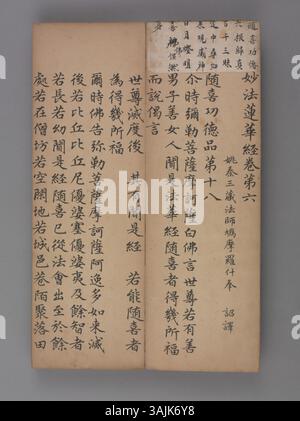 妙法蓮華經卷第六
姚秦三藏法師鳩摩羅什奉 詔譯
隨喜功德品第十八
尒時彌勒菩薩摩訶薩白佛言世尊若有善
男子善女人聞是法華經隨喜者得幾所福
而說偈言
世尊滅度後 其有聞是經 若能隨喜者
為得幾所福
爾時佛告彌勒菩薩摩訶薩阿逸多如來滅
後若比丘比丘尼優婆塞優婆夷及餘智者
若長若幼聞是經隨喜已從法會出至於餘
處若在僧坊若空閑地若城邑巷陌聚落田
alamy
Image ID: 3AJK6Y8
www.alamy.com